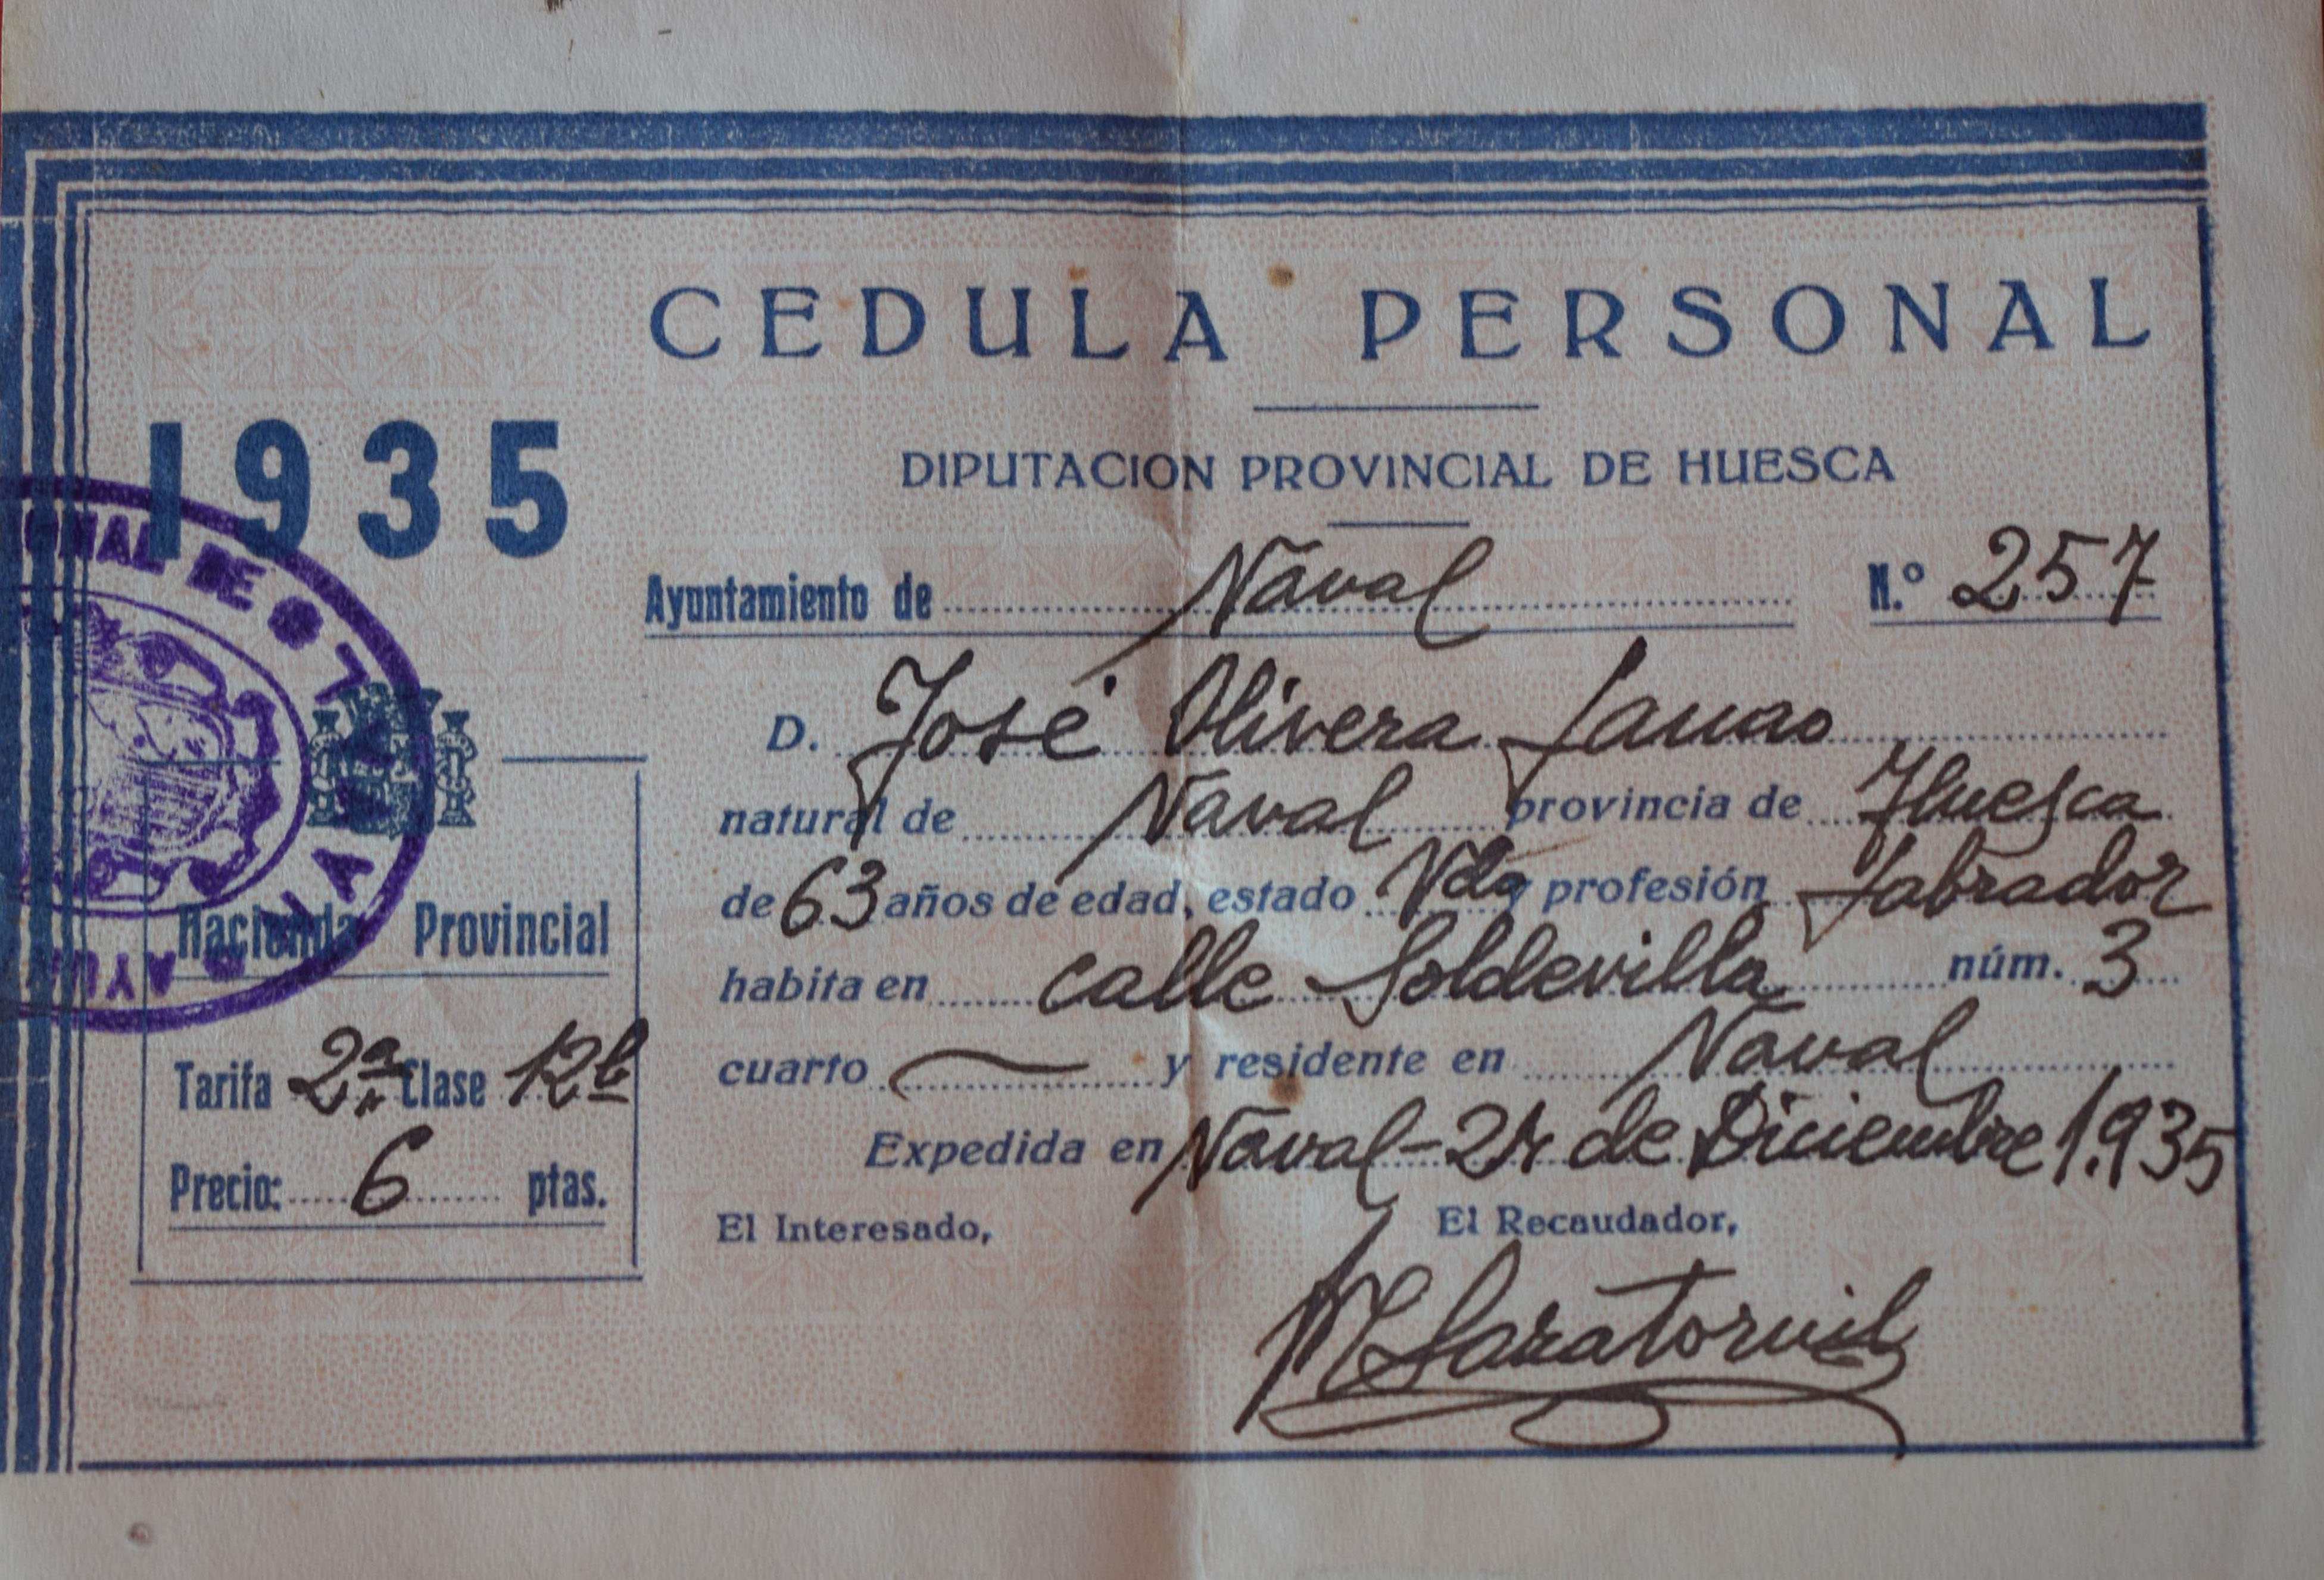 CEDULA PERSONAL
1935
DIPUTACION PROVINCIAL DE HUESCA
Ayuntamiento de Naval N.º 257
D. José Olivera Lanao
natural de Naval provincia de Huesca
de 63 años de edad, estado Vdo profesión Labrador
habita en calle Soldevilla núm. 3
cuarto y residente en Naval
Expedida en Naval - 24 de Diciembre 1.935
El Interesado, El Recaudador,
Hacienda Provincial
Tarifa 2ª Clase 12ª
Precio: 6 ptas.
NAL DE
NAVAL
AYU